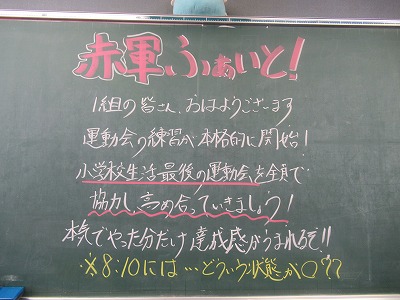 赤軍ふぁいと！
1組の皆さん、おはようございます
運動会の練習が本格的に開始！
小学校生活最後の運動会を全員で
協力し、高め合っていきましょう！
本気でやった分だけ達成感がうまれるぞ!!
※8:10には…どういう状態が〇??